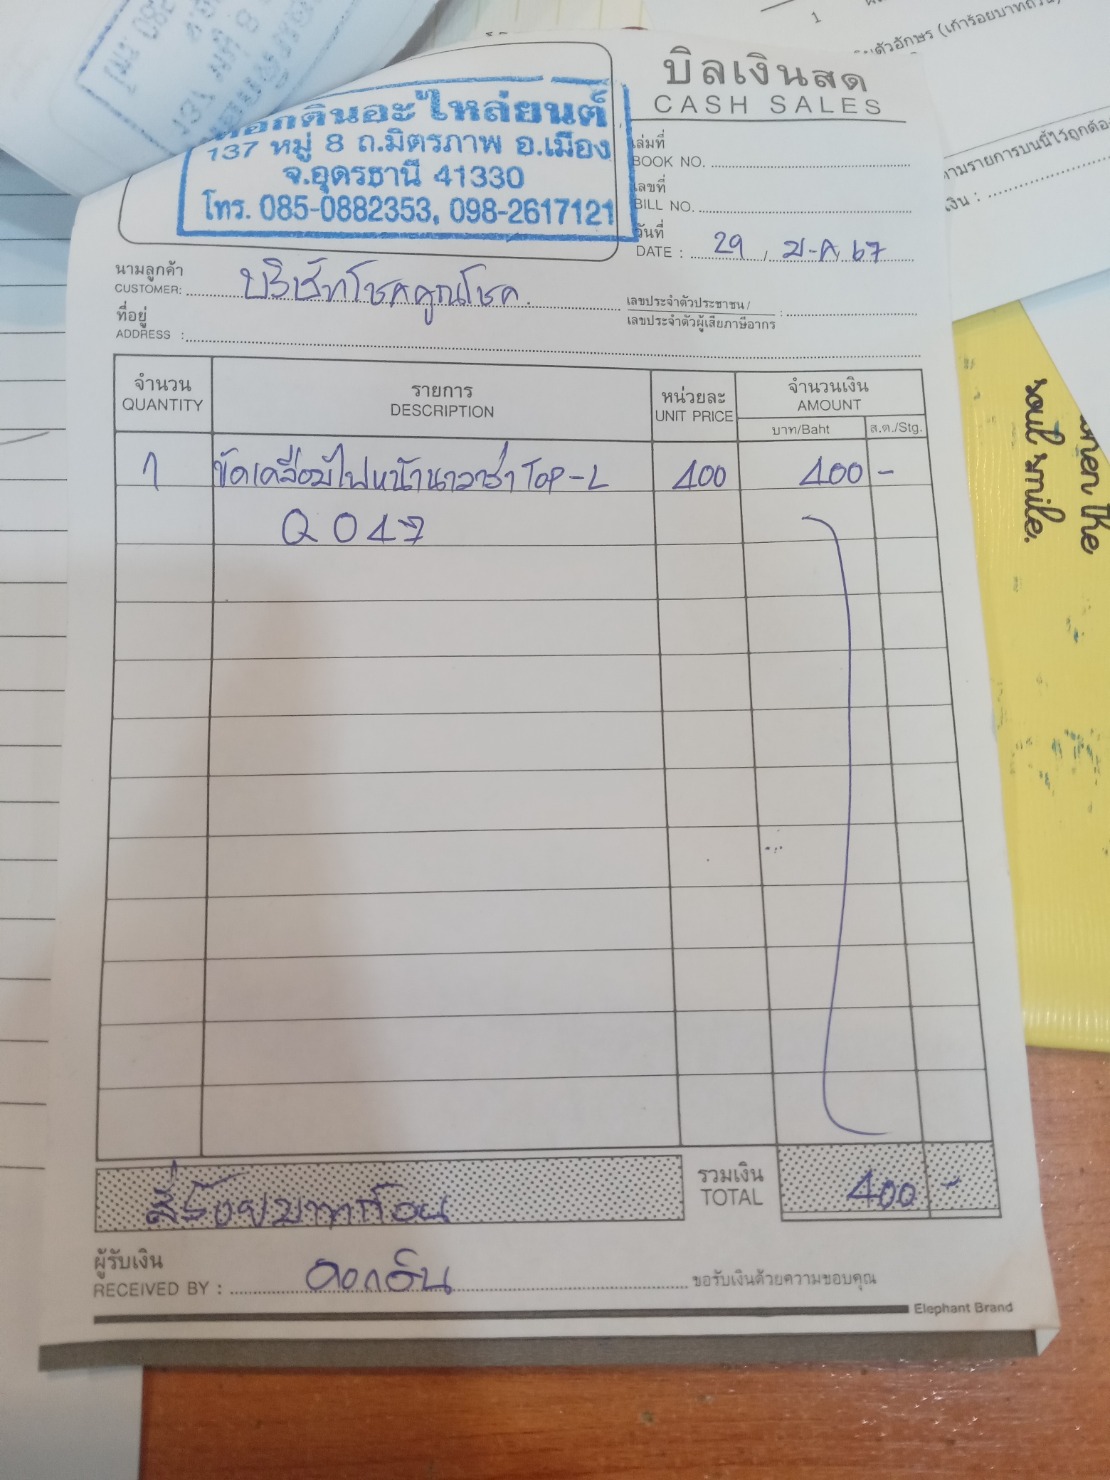 บิลเงินสด
CASH SALES
ดอกดินอะไหล่ยนต์
137 หมู่ 8 ถ.มิตรภาพ อ.เมือง
จ.อุดรธานี 41330
โทร. 085-0882353, 098-2617121
เล่มที่
BOOK NO.
เลขที่
BILL NO.
วันที่
DATE : 29 / ม.ค / 67
นามลูกค้า
CUSTOMER: บริษัทโชคคูณโชค
เลขประจำตัวประชาชน /
เลขประจำตัวผู้เสียภาษีอากร :
ที่อยู่
ADDRESS :
จำนวน รายการ หน่วยละ จำนวนเงิน
QUANTITY DESCRIPTION UNIT PRICE AMOUNT
บาท/Baht ส.ต./Stg.
1 ขัดเคลือบไฟหน้านาวาร่า TOP-L 400 400 -
Q 047
สี่ร้อยบาทถ้วน รวมเงิน 400 -
TOTAL
ผู้รับเงิน
RECEIVED BY : ดอกดิน ขอรับเงินด้วยความขอบคุณ
Elephant Brand
1
ตัวอักษร (เก้าร้อยบาทถ้วน)
ตามรายการบนนี้ไว้ถูกต้อง
เงิน :
when the
soul smile.